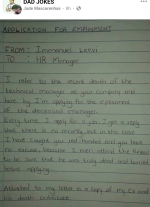 DAD JOKES
APPLICATION FOR EMPLOYMENT
FROM: Immanuel
TO : HR Manager
I refer to the recent death of the
technical manager at your company and
hereby I'm applying for the replacement
of the deceased manager.
Every time I apply for a job I get a reply
that there is no vacancy but in this case
I have caught you red handed and you have
no excuse because I even attended the funeral
to be sure that he was truly dead and buried
before applying.
Attached to my letter is a copy of my CV and
his death certificate.